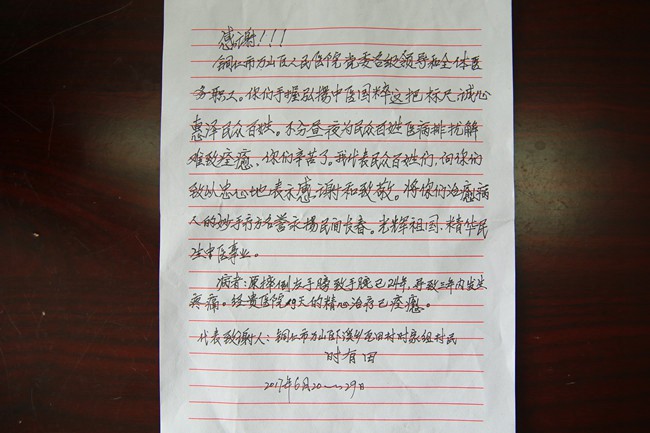 感谢!!!
铜仁市万山区人民医院党委各级领导和全体医
务职工。你们手握弘扬中医国粹这把标尺,诚心
惠泽民众百姓。不分昼夜为民众百姓医病排扰解
难致痊愈、你们辛苦了。我代表民众百姓们,向你们
致以忠心地表示感谢和致敬。将你们治愈病
人的妙手疗方名誉永扬民间长春。光辉祖国、精华民
生中医事业。
病者:原摔倒左手膀致手腕已24年,导致三年内
疼痛。经贵医院19天的精心治疗已痊愈。
代表致谢人:铜仁市万山区 溪乡瓦田村时家组村民
时有田
2017年6月20——29日